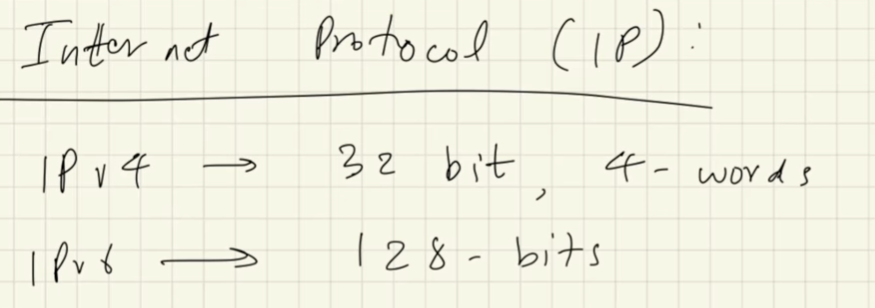 Internet Protocol (IP):
IPv4 → 32 bit, 4-words
IPv6 → 128-bits